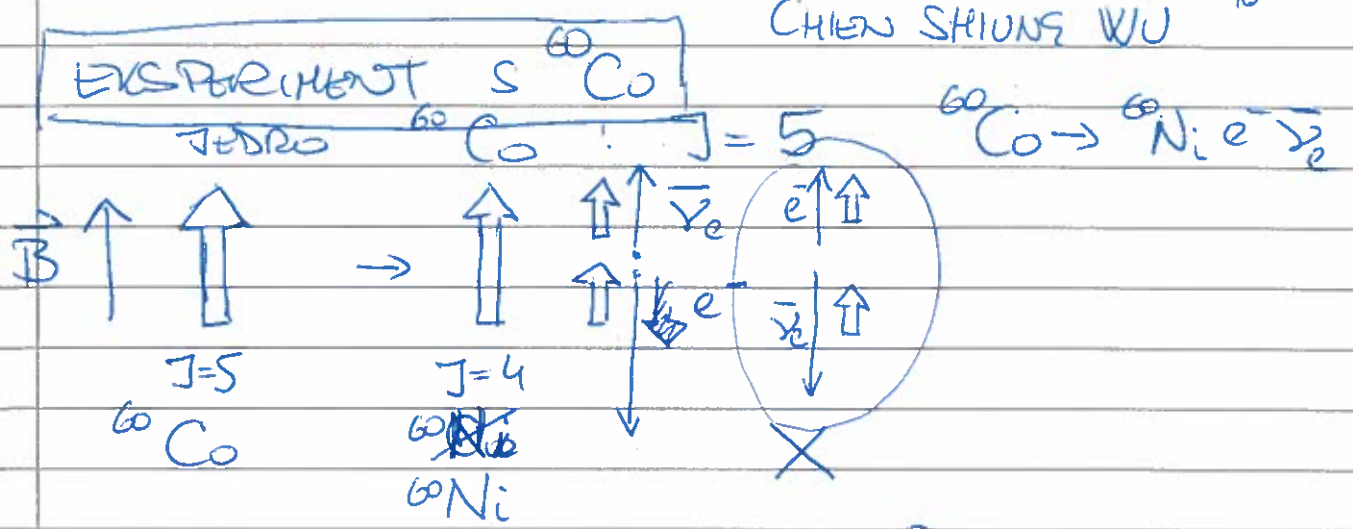 CHIEN SHIUNG WU
EKSPERIMENT S ⁶⁰Co
JEDRO ⁶⁰Co : J = 5
⁶⁰Co → ⁶⁰Ni e⁻ ν̄ₑ
B⃗ → ν̄ₑ e⁻
e⁻ ν̄ₑ
J=5 J=4
⁶⁰Co
⁶⁰Ni